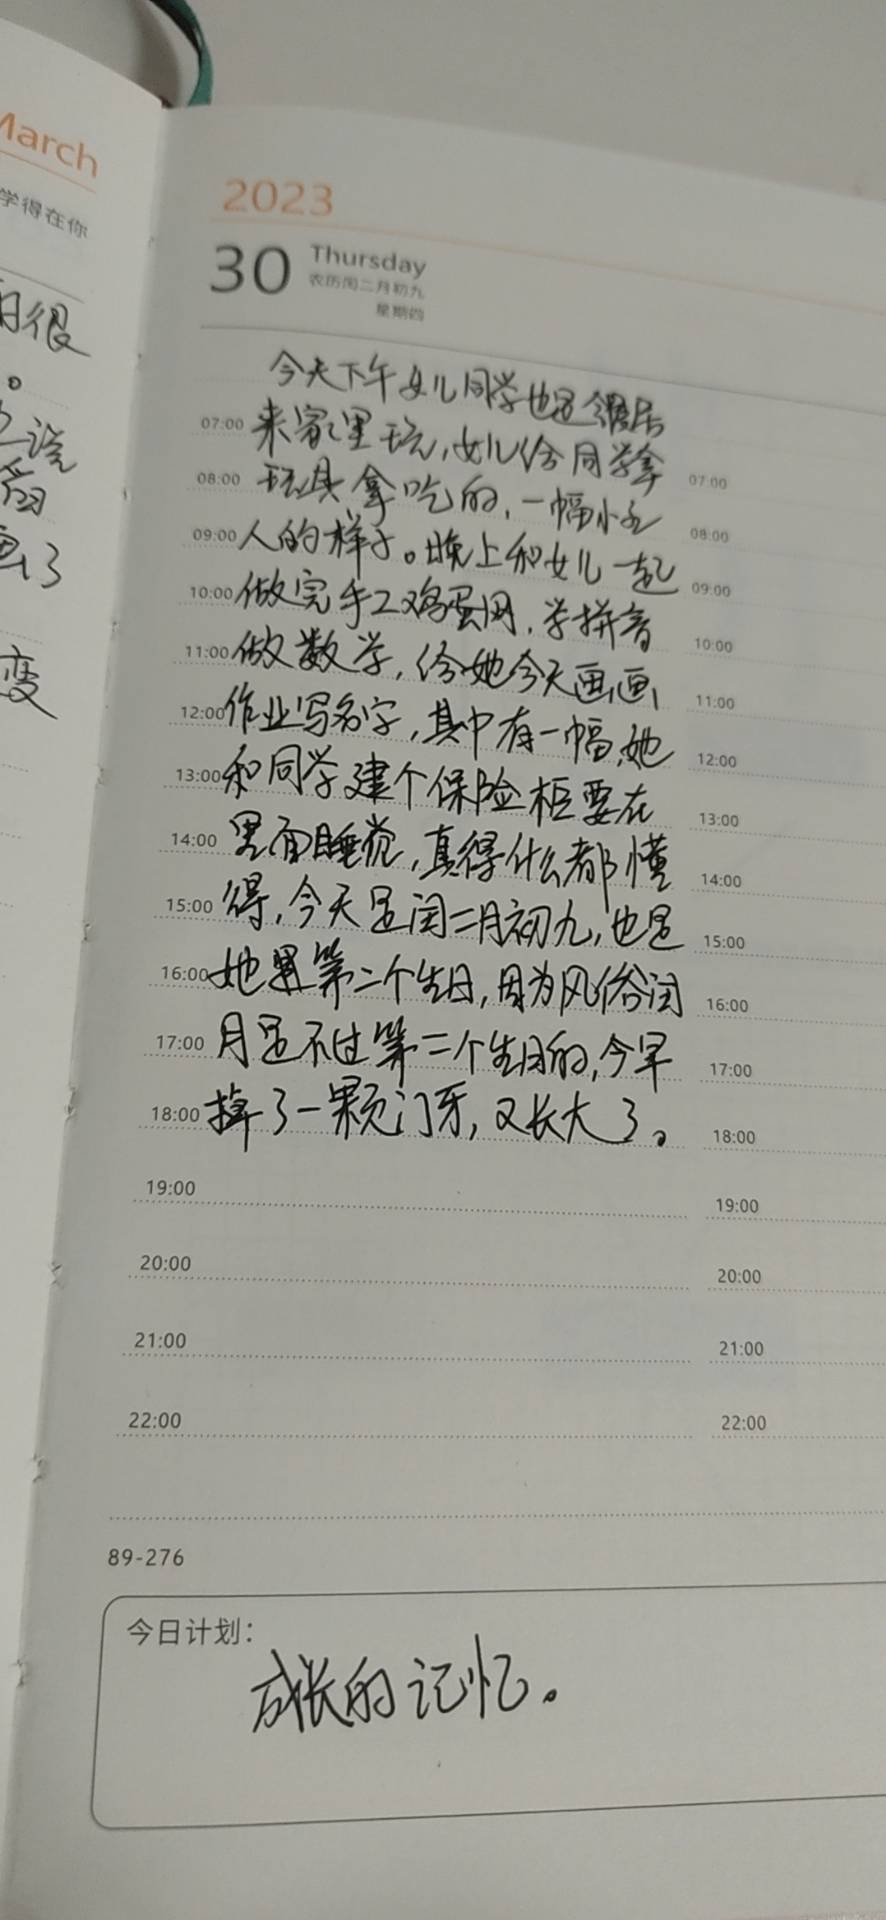 March
学得在你
很
。
说
了
变
2023
30 Thursday
农历闰二月初九
星期四
今天下午女儿同学也是邻居
07:00 来家里玩,女儿给同学拿 07:00
08:00 玩具拿吃的,一幅小主 08:00
09:00 人的样子。晚上和女儿一起 09:00
10:00 做完手工鸡蛋网,学拼音 10:00
11:00 做数学,给她今天画画 11:00
12:00 作业写名字,其中有一幅,她 12:00
13:00 和同学建个保险柜要在 13:00
14:00 里面睡觉,真得什么都懂 14:00
15:00 得,今天是闰二月初九,也是 15:00
16:00 她第二个生日,因为风俗闰 16:00
17:00 月是不过第二个生日的,今早 17:00
18:00 掉了一颗门牙,又长大了。 18:00
19:00 19:00
20:00 20:00
21:00 21:00
22:00 22:00
89-276
今日计划:
成长的记忆。